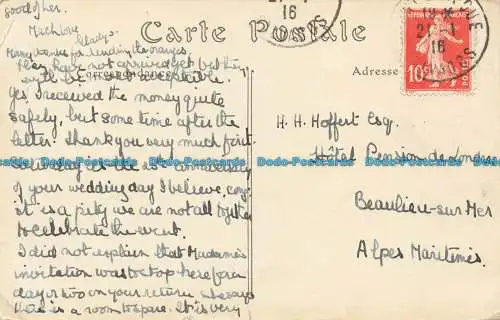 good of her.
Much love
Gladys.
Many thanks for sending the oranges.
They have not arrived yet but they
will be most acceptable.
Yes, I received the money quite
safely, but some time after the
letter. Thank you very much for it.
Saturday is the anniversary
of your wedding day I believe,
it is a pity we are not all together
to celebrate the event.
I did not explain that Madame's
invitation was to stop here for a
day or two on your return
there is a room to spare. It is very
Carte Postale
Adresse
H. H. Hoffert Esq.
Hôtel Pension de Londres
Beaulieu-sur-Mer
Alpes Maritimes.
16
21
16
10
POSTES
Dodo-Postcards Dodo-Postcards Dodo-Postcards Dodo-Postcards